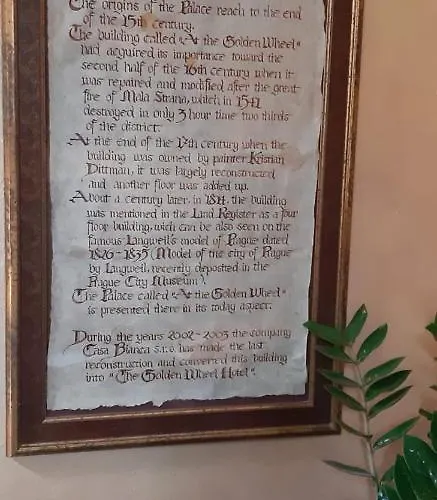 The origins of the Palace reach to the end
of the 15th century.
The building called "At the Golden Wheel"
had acquired its importance toward the
second half of the 16th century when it
was repaired and modified after the great
fire of Mala Strana, which in 1541
destroyed in only 3 hour time two thirds
of the district.
At the end of the 17th century when the
building was owned by painter Kristian
Dittman, it was largely reconstructed
and another floor was added up.
About a century later, in 1814, the building
was mentioned in the Land Register as a four
floor building, wich can be also seen on the
famous Langweil's model of Prague dated
1826-1835 (Model of the city of Prague
by Langweil, recently deposited in the
Prague City Museum).
The Palace called "At the Golden Wheel"
is presented there in its today aspect.
During the years 2002-2003 the company
Casa Bianca s.r.o. has made the last
reconstruction and converted this building
into "The Golden Wheel Hotel".